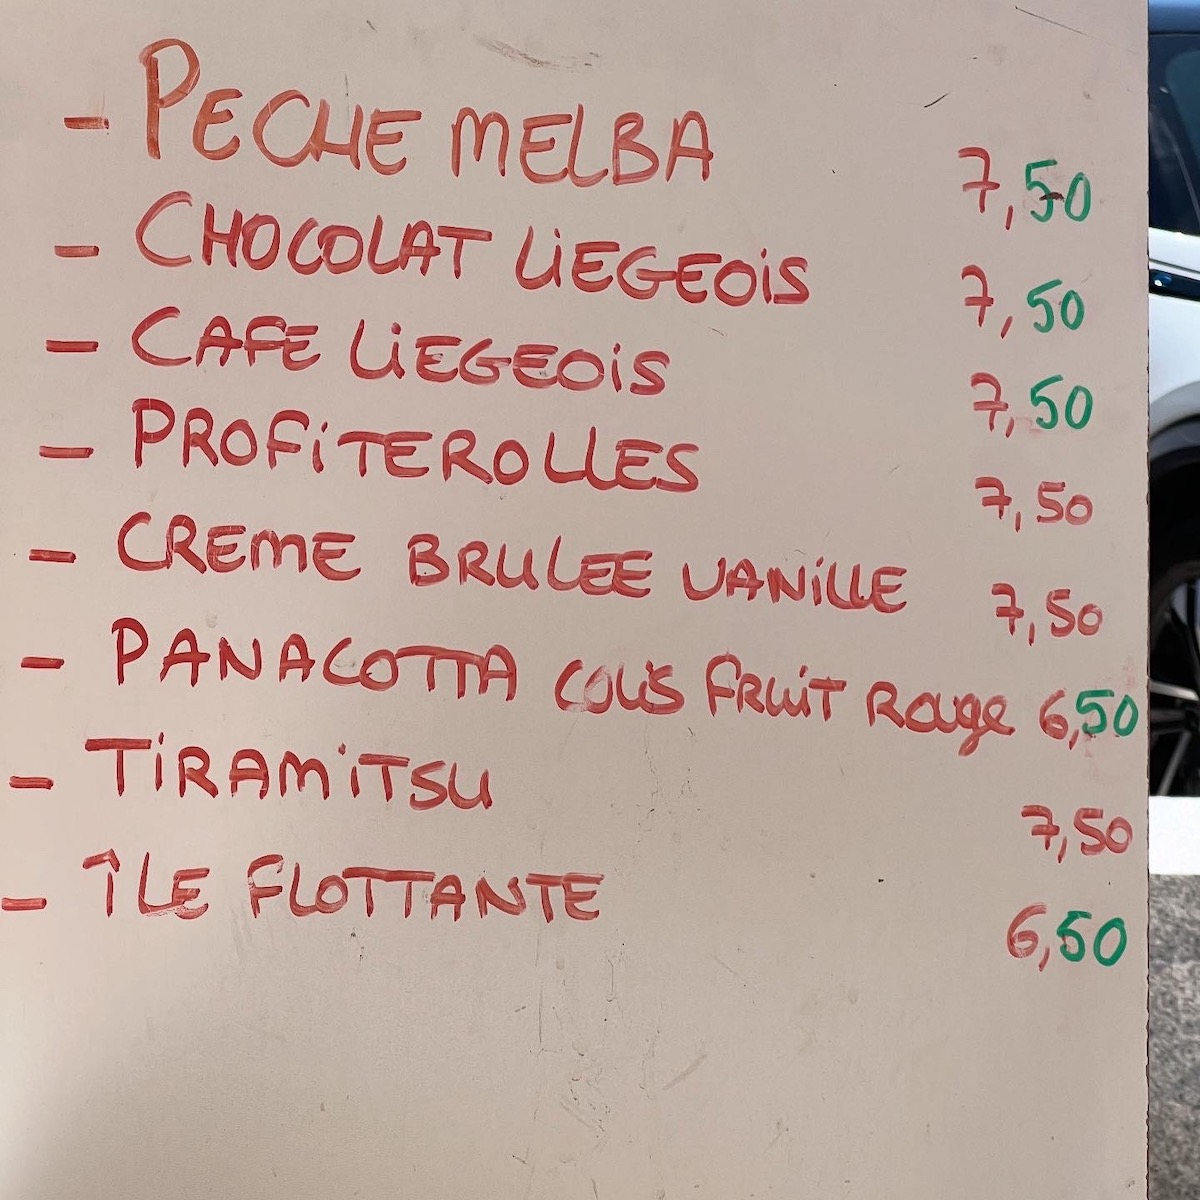 - PECHE MELBA 7,50
- CHOCOLAT LIEGEOIS 7,50
- CAFE LIEGEOIS 7,50
- PROFITEROLLES 7,50
- CREME BRULEE VANILLE 7,50
- PANACOTTA COLIS FRUIT ROUGE 6,50
- TIRAMITSU 7,50
- ÎLE FLOTTANTE 6,50